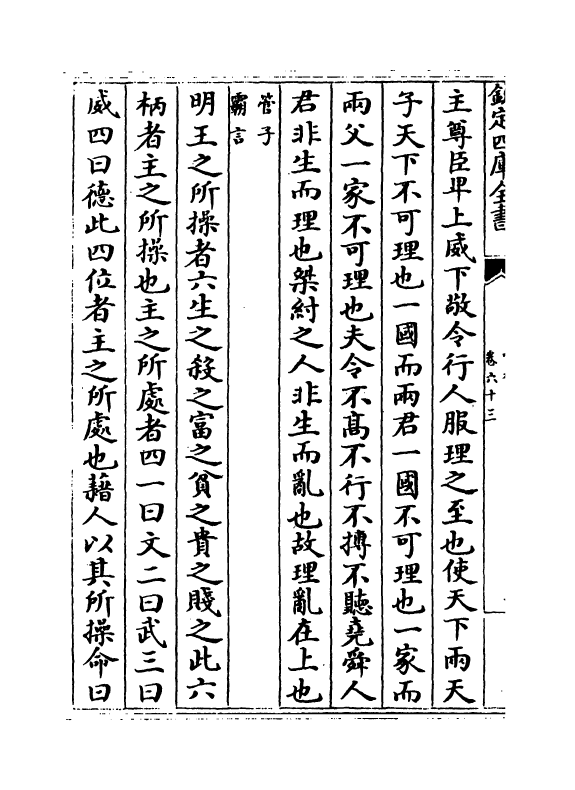 欽定四庫全書
卷六十三
主尊臣卑上威下敬令行人服理之至也使天下兩天
子天下不可理也一國而兩君一國不可理也一家而
兩父一家不可理也夫令不髙不行不搏不聽堯舜人
君非生而理也桀紂之人非生而亂也故理亂在上也
管子
霸言
明王之所操者六生之殺之富之貧之貴之賤之此六
柄者主之所操也主之所處者四一曰文二曰武三曰
威四曰德此四位者主之所處也藉人以其所操命曰